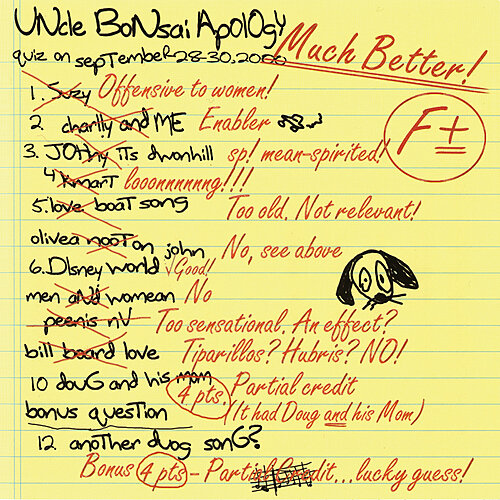 UNcle BoNsai ApolOgy
quiz on sepTembeR 28-30.2006
Much Better!
F±
1. Suzy Offensive to women!
2 charlIy and ME Enabler
3. JOHNy iTs dwonhill sp! mean-spirited!
4 Kmart looonnnnnng!!!
5. love boaT song Too old. Not relevant!
olivea nooTon john No, see above
6. DIsney world √Good!
men aNd womean No
peenis nV Too sensational. An effect?
bill board love Tiparillos? Hubris? NO!
10 douG and his mom 4 pts. Partial credit
bonus quesTion (It had Doug and his Mom)
12 another duog sonG?
Bonus 4 pts - Partial Credit...lucky guess!